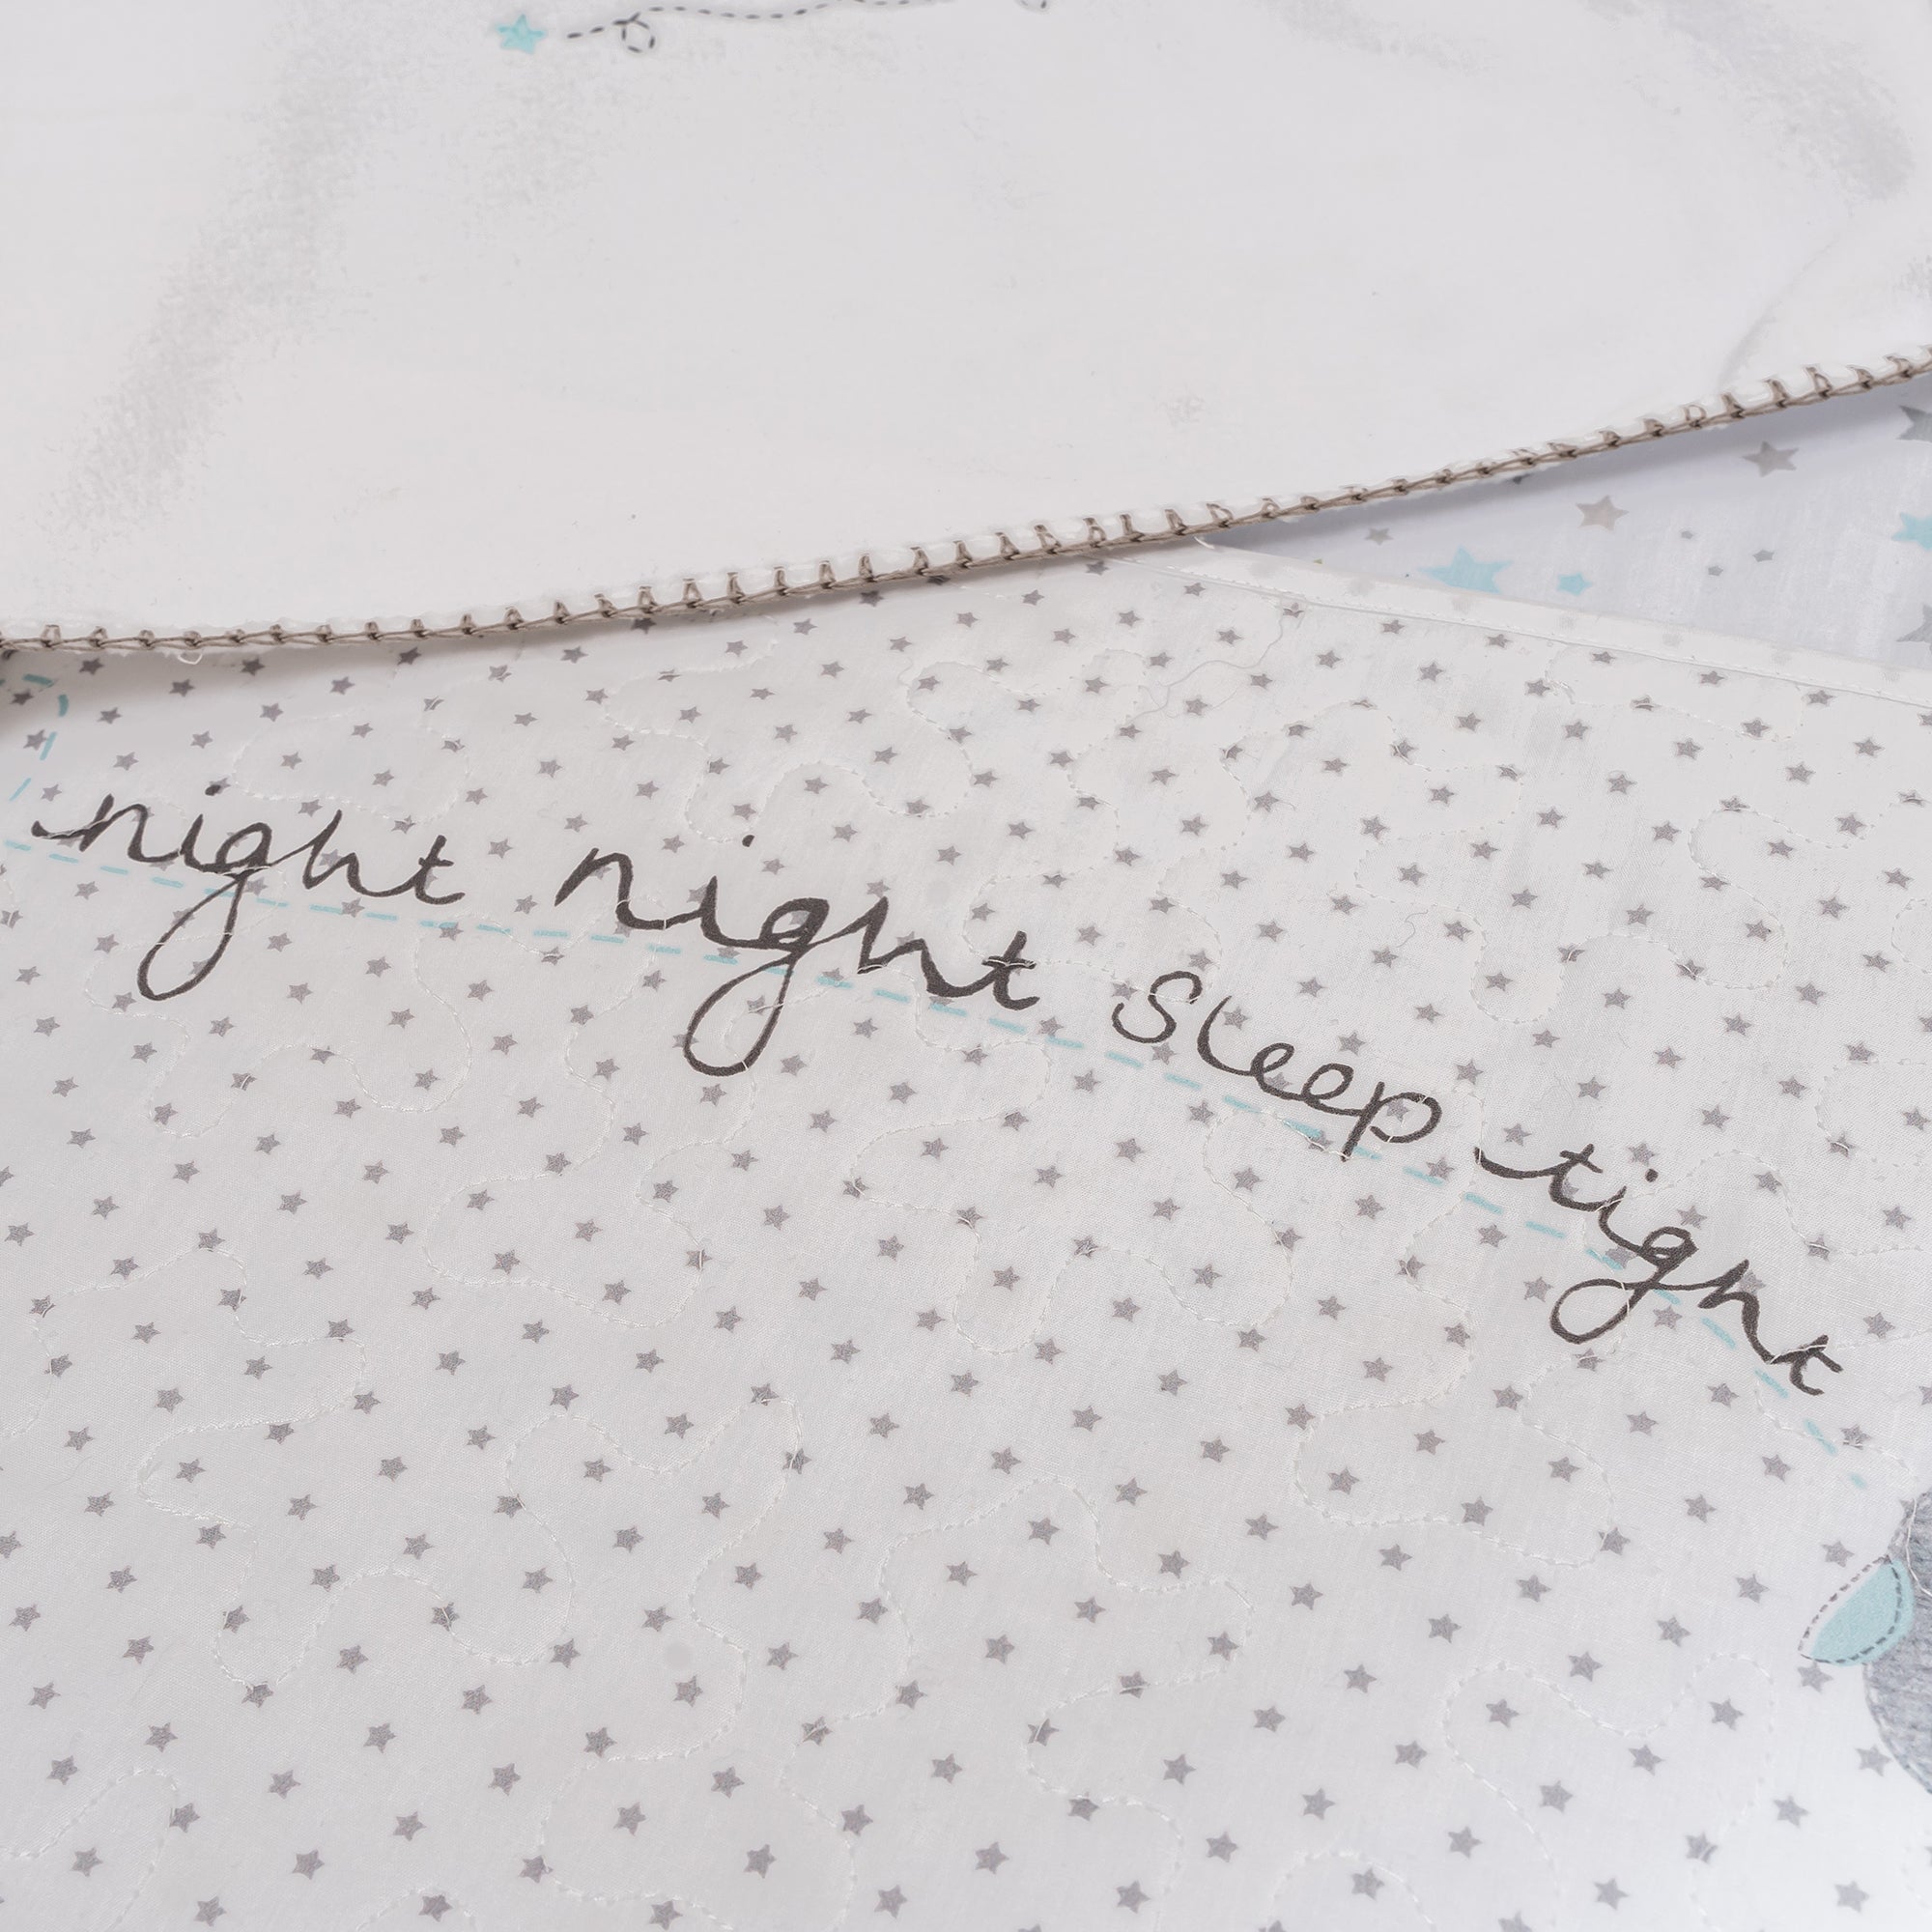 night night sleep tight